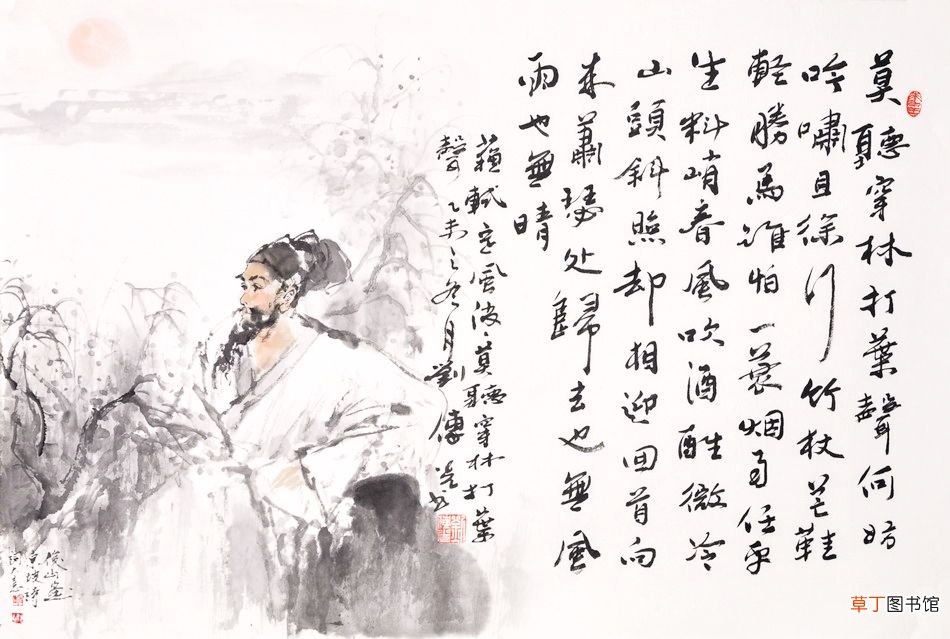 莫聽穿林打葉聲何妨
吟嘯且徐行竹杖芒鞋
輕勝馬誰怕一蓑烟雨任平
生料峭春風吹酒醒微冷
山頭斜照却相迎回首向
来蕭瑟处歸去也無風
雨也無晴
蘇軾定風波、莫聽穿林打葉
聲乙未之冬月劉傳
俊山画
東坡詩
草丁图书馆